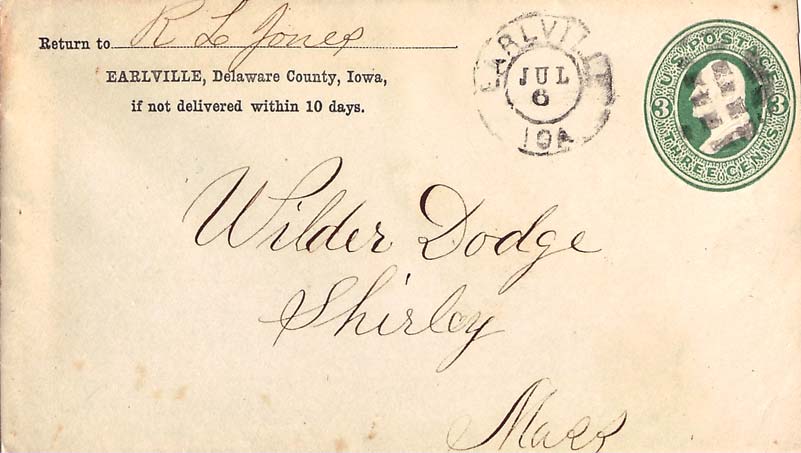 Return to R L Jones
EARLVILLE, Delaware County, Iowa,
if not delivered within 10 days.
EARLVILLE
JUL
6
IOA
U.S. POSTAGE
3 3
THREE CENTS
Wilder Dodge
Shirley
Mass